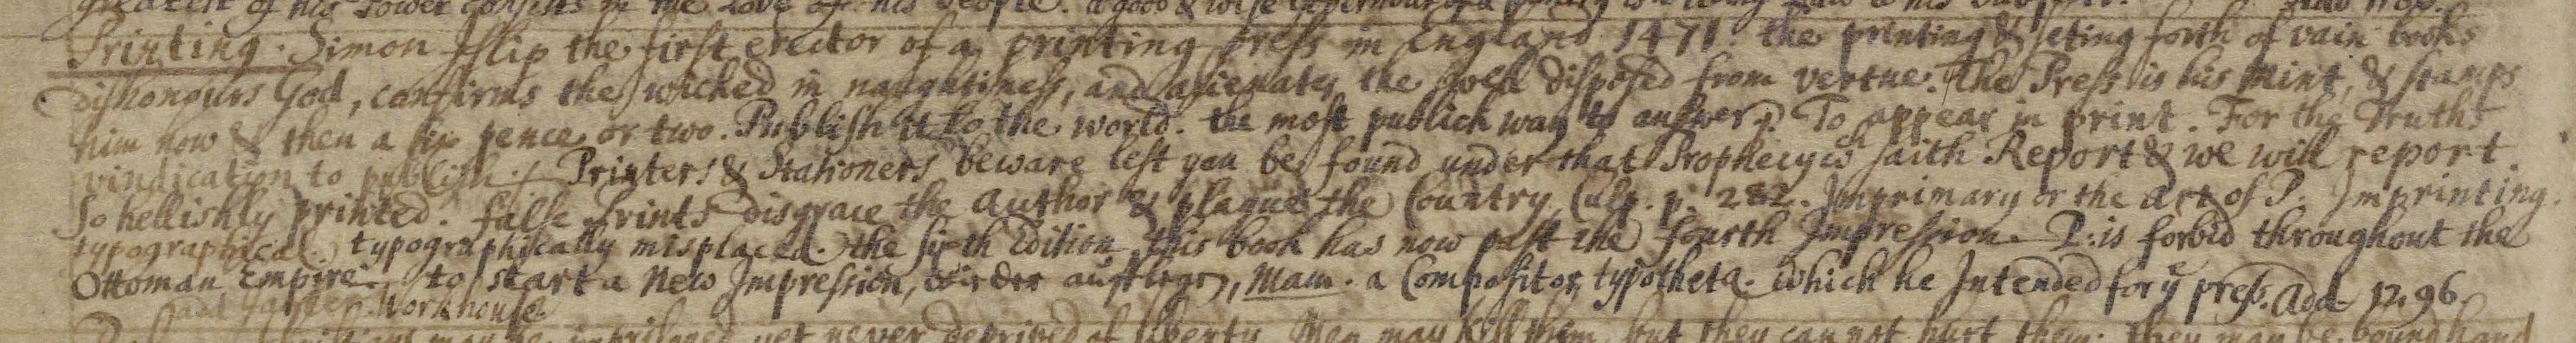 greatest of his Power consists in the Love of his people. a good & wise
Printing. Simon Islip the first erector of a printing press in England 1471. the printing & seting forth of vain books
dishonours God, confirms the wicked in naughtiness, and alienates the well disposed from vertue. The Press is his Mint, & stamps
him now & then a six pence or two. Publish it to the world. the most publick way to answer. To appear in print. For the Truths
vindication to publish. Printers & Stationers beware lest you be found under that Prophecy wch saith Report & we will report.
So hellishly printed. false Prints disgrace the Author & plague the Country, Culp. p. 282. Imprimary or the Art of P. Imprinting.
typographical. typographically misplaced. the sixth Edition. this book has now past the fourth Impression. P. is forbid throughout the
Ottoman Empire. to start a New Impression, wieder auflegen, Mam. a Compositor, typotheta. which he Intended for ye press. Add. 1296.
Workhouse
yet never deprived of liberty. Men may kill them, but they can not hurt them. They may be bound hand